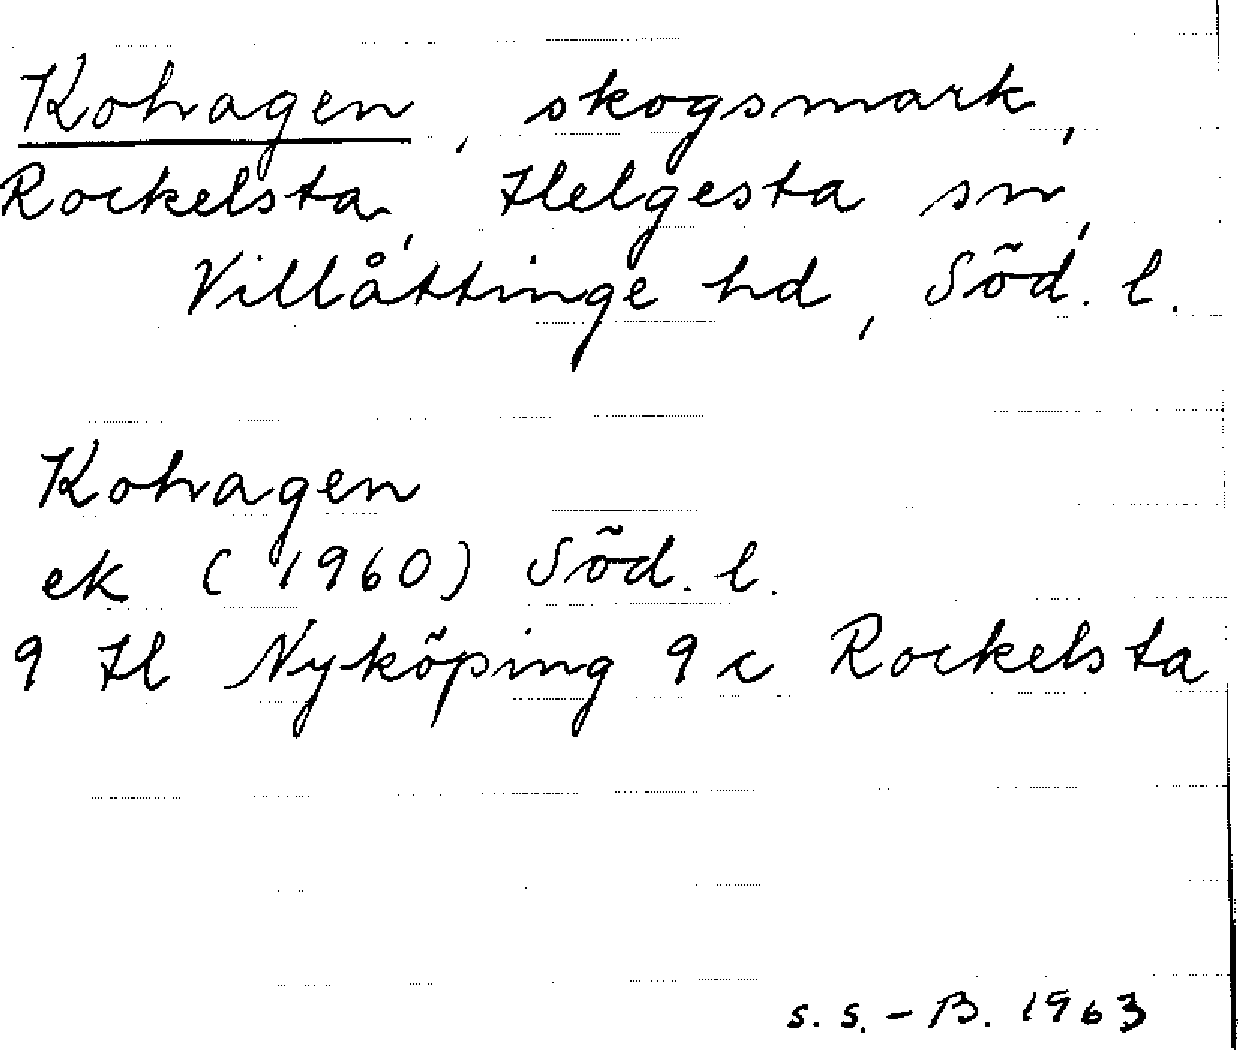 Kohagen, skogsmark,
Rockelsta, Helgesta sn,
Villåttinge hd, Söd. l.
Kohagen
ek (1960) Söd. l.
9 H Nyköping 9 c Rockelsta
s. s. - B. 1963